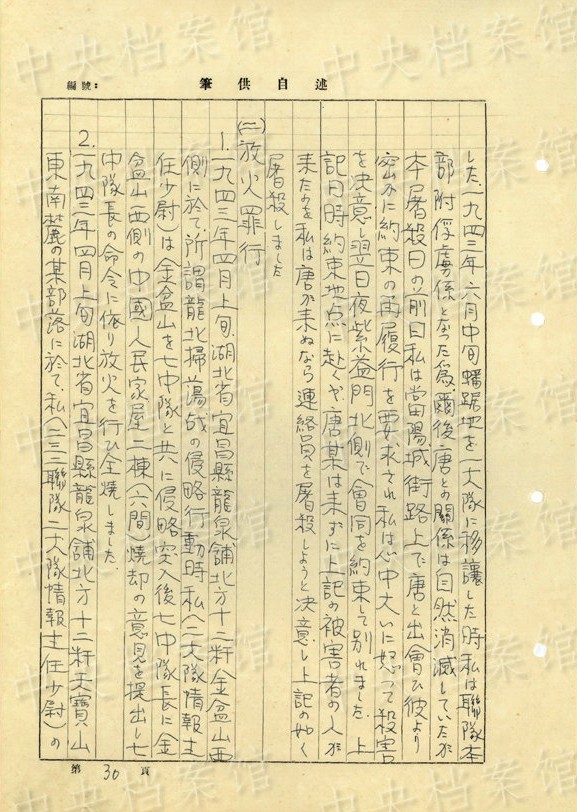 編號：
筆供自述
した、一九四三年六月中旬蟠踞地を一大隊に移譲した時私は聯隊本
部附俘虜係となった爲、爾後唐との關係は自然消滅していたが
本屠殺日の前日私は當陽城街路上で唐と出會ひ彼より
密かに約束の再履行を要求され私は心中大いに怒って殺害
を決意し翌日夜紫益門北側で會同を約束して別れました、上
記日時約束地点に赴くや唐某は未ずに上記の被害者の人が
来たるを私は唐が来ぬなら連絡員を屠殺しようと決意し上記の如く
屠殺しました
(二)放火罪行
1.一九四三年四月上旬、湖北省宜昌縣龍泉舗北方十二粁金盆山西
側に於て、所謂龍北掃蕩战の侵略行動時私(二大隊情報主
任少尉)は金盆山を七中隊と共に侵略突入後七中隊長に金
盆山西側の中國人民家屋二棟(六間)焼却の意見を提出し七
中隊長の命令に依り放火を行ひ全焼しました、
2.一九四三年四月上旬湖北省宜昌縣龍泉舗北方十二粁天寶山
東南麓の某部落に於て、私(二三二聯隊二大隊情報主任少尉)の
第 30 頁
中央档案馆